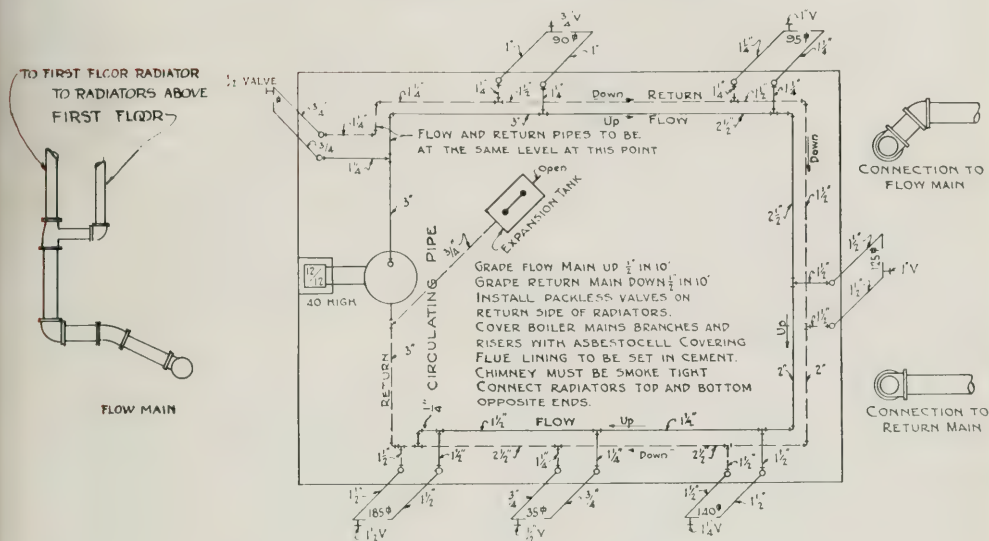 TO FIRST FLOOR RADIATOR
TO RADIATORS ABOVE
FIRST FLOOR
FLOW MAIN
1/2 VALVE
3/4
3/4"
1 1/4"
1 1/4"
3/4" V
90 ϕ
1"
1"
1 1/4"
1 1/2"
1 1/4"
1" V
95 ϕ
1 1/4"
1 1/4"
1 1/4"
1 1/2"
1 1/4"
Down RETURN
3" Up FLOW 2 1/2"
FLOW AND RETURN PIPES TO BE
AT THE SAME LEVEL AT THIS POINT
Down
3"
Open
EXPANSION TANK
3/4"
CIRCULATING PIPE
12/12
40 HIGH
GRADE FLOW MAIN UP 1/2" IN 10'
GRADE RETURN MAIN DOWN 1/2" IN 10'
INSTALL PACKLESS VALVES ON
RETURN SIDE OF RADIATORS.
COVER BOILER MAINS BRANCHES AND
RISERS WITH ASBESTOCELL COVERING
FLUE LINING TO BE SET IN CEMENT.
CHIMNEY MUST BE SMOKE TIGHT
CONNECT RADIATORS TOP AND BOTTOM
OPPOSITE ENDS.
2 1/2"
1 1/2"
1 1/2"
1 1/2"
1 1/2"
1 1/2"
125 ϕ
1" V
Up
2"
2"
RETURN
3"
1 1/4"
1 1/2" FLOW Up 1 1/2"
2 1/2" Down 2 1/2"
1 1/2"
1 1/2"
1 1/4"
1 1/4"
1 1/2"
1 1/2"
1 1/2"
185 ϕ
1 1/2"
1 1/2 V
3/4"
35 ϕ
3/4"
1/2" V
1 1/2"
140 ϕ
1 1/2"
1 1/4" V
CONNECTION TO
FLOW MAIN
CONNECTION TO
RETURN MAIN